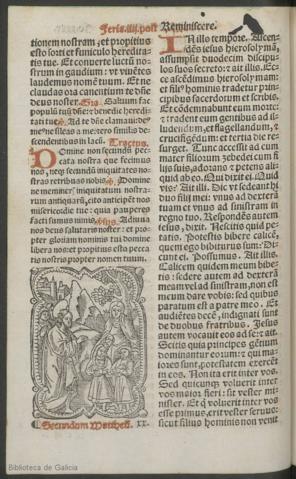 Feria.iiij.post Reminiscere.
tionem nostram: et propitius
esto sorti et funiculo heredita
tis tue. Et converte luctũ no-
strum in gaudium: vt viuẽtes
laudemus nomẽ tuum. Et ne
claudas ora canentium te dñe
deus noster. Saluum fac
populũ tuũ dñe: ꝛ benedic heredi
tati tue. Ad te dñe clamaui de⁹
me⁹ ne sileas a me: ꝛ ero similis de-
scendentibus in lacũ. Tractus.
Domine non secundũ pec-
cata nostra que fecimus
nos, neqꝫ secundũ iniquitates no-
stras retribuas nobis. Domine
ne memineris iniquitatum nostra-
rum antiquarũ, cito anticipẽt nos
misericordie tue: quia pauperes
facti sumus nimis. Adiuua
nos deus salutaris noster: et pro-
pter gloriam nominis tui domine
libera nos: et propitius esto pecca
tis nostris propter nomen tuum.
Secundum Mattheũ. xx.
IN illo tempore. Ascen-
dẽs iesus hierosolymã,
assumpsit duodecim discipu-
los suos secreto: ꝛ ait illis. Ec-
ce ascẽdimus hierosolymam:
et fili⁹ hominis tradetur prin-
cipibus sacerdotum et scribis.
Et cõdemnabunt eum morte:
ꝛ tradent eum gentibus ad il-
ludendum, et flagellandum, ꝛ
crucifigẽdum: et tertia die re-
surget. Tunc accessit ad eum
mater filiorum zebedei cum fi
lijs suis, adorans ꝛ petens ali-
quid ab eo. Qui dixit ei. Quid
vis: Ait illi. Dic vt sedeant hi
duo filij mei: vnus ad dexterã
tuam et vnus ad sinistram in
regno tuo. Respondẽs autem
iesus, dixit. Nescitis quid pe-
tatis. Potestis bibere calicẽ,
quem ego bibiturus sum: Di
cunt ei. Possumus. Ait illis.
Calicem quidem meum bibe-
tis: sedere autem ad dexterã
meam vel ad sinistram, non est
meum dare vobis: sed quibus
paratum est a patre meo. Et
audiẽtes decẽ, indignati sunt
de duobus fratribus. Jesus
autem vocauit eos ad se: ꝛ ait.
Scitis quia principes gẽtium
dominantur eorum: ꝛ qui ma-
iores sunt, potestatem exercẽt
in eos. Non ita erit inter vos.
Sed quicunqꝫ voluerit inter
vos maior fieri: sit vester mi-
nister. Et qui voluerit inter vos
esse primus, erit vester seruus:
sicut filius hominis non venit
Biblioteca de Galicia